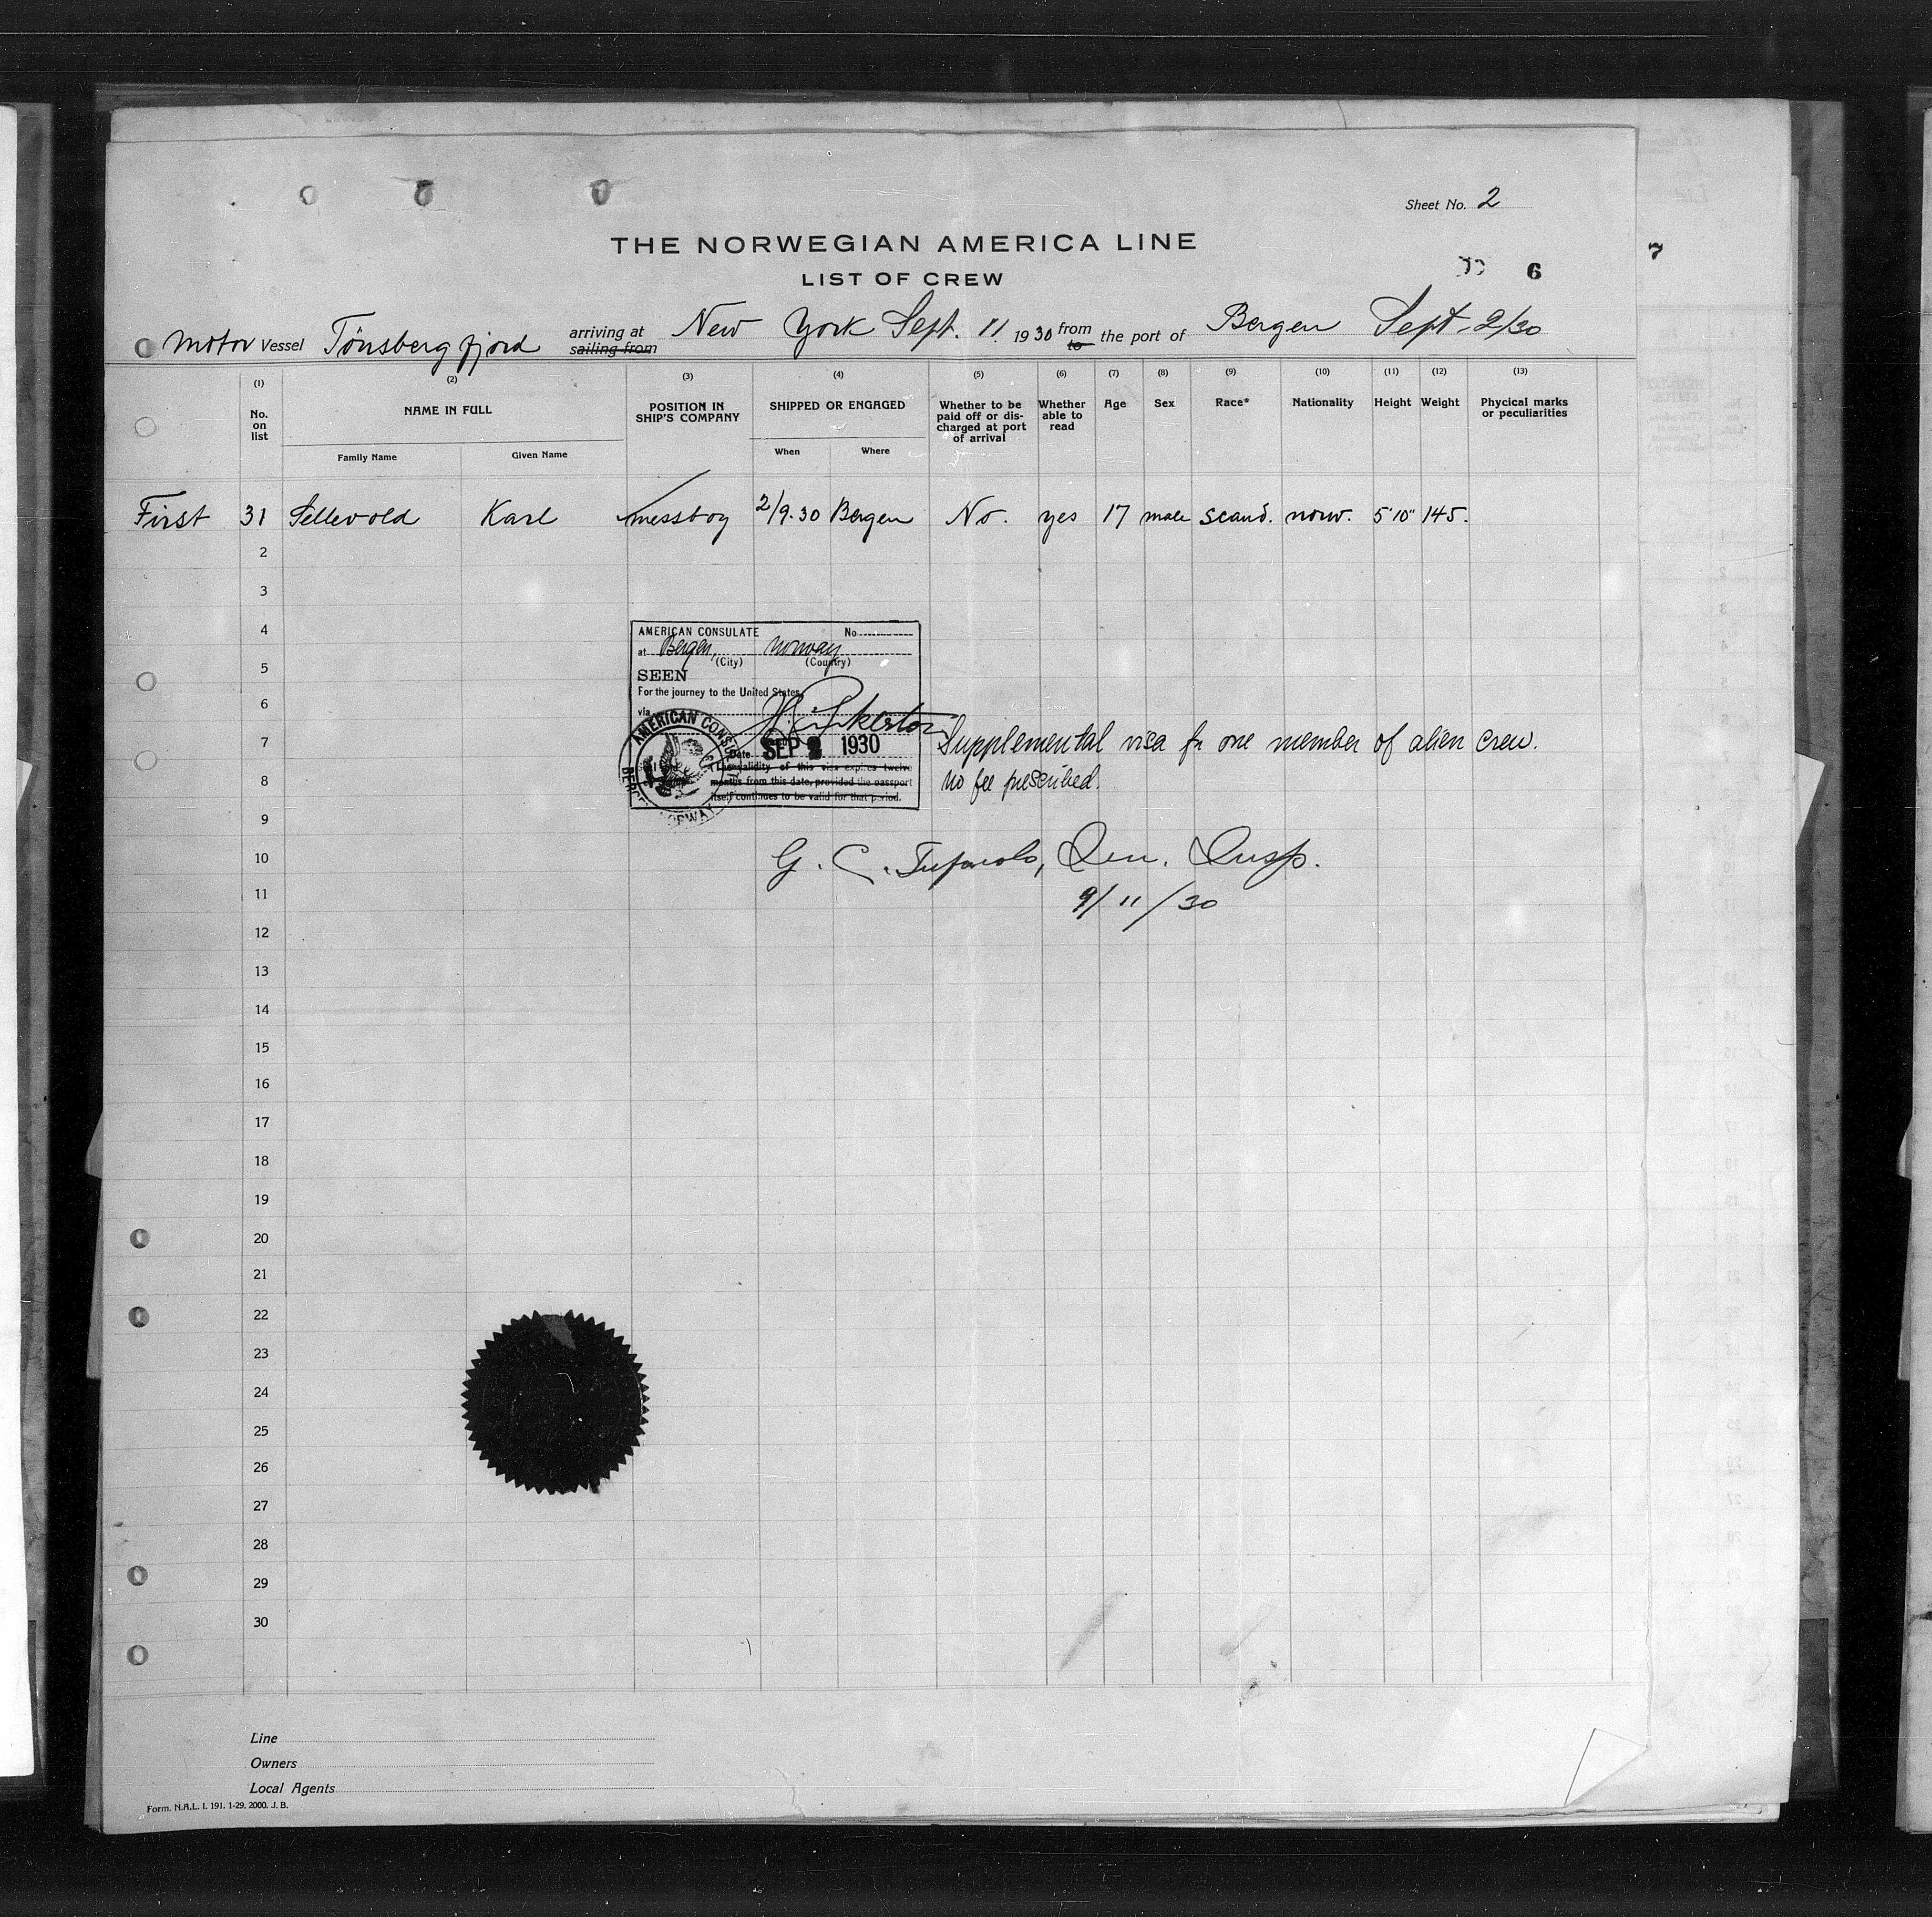 Sheet No. 2
THE NORWEGIAN AMERICA LINE
6
7
LIST OF CREW
motor Vessel Tönsbergfjord arriving at sailing from New York Sept. 11. 1930 from to the port of Bergen Sept. 2/30
(1) (2) (3) (4) (5) (6) (7) (8) (9) (10) (11) (12) (13)
No. on list
NAME IN FULL
Family Name Given Name
POSITION IN SHIP'S COMPANY
SHIPPED OR ENGAGED
When Where
Whether to be paid off or dis-charged at port of arrival
Whether able to read
Age
Sex
Race*
Nationality
Height
Weight
Phycical marks or peculiarities
First 31 Sellevold Karl messboy 2/9.30 Bergen No. yes 17 male scand. norw. 5'10" 145.
2
3
4
5
6
7
8
9
10
11
12
13
14
15
16
17
18
19
20
21
22
23
24
25
26
27
28
29
30
AMERICAN CONSULATE No
at Bergen, Norway
(City) (Country)
SEEN
For the journey to the United States
via
Date SEP 2 1930
The validity of this visa expires twelve
months from this date, provided the passport
itself continues to be valid for that period.
AMERICAN CONSULATE
BERGEN NORWAY
Supplemental visa for one member of alien crew.
No fee prescribed.
G. C. Imm. Insp.
9/11/30
Line
Owners
Local Agents
Form. N.A.L. I. 191. 1-29. 2000. J. B.